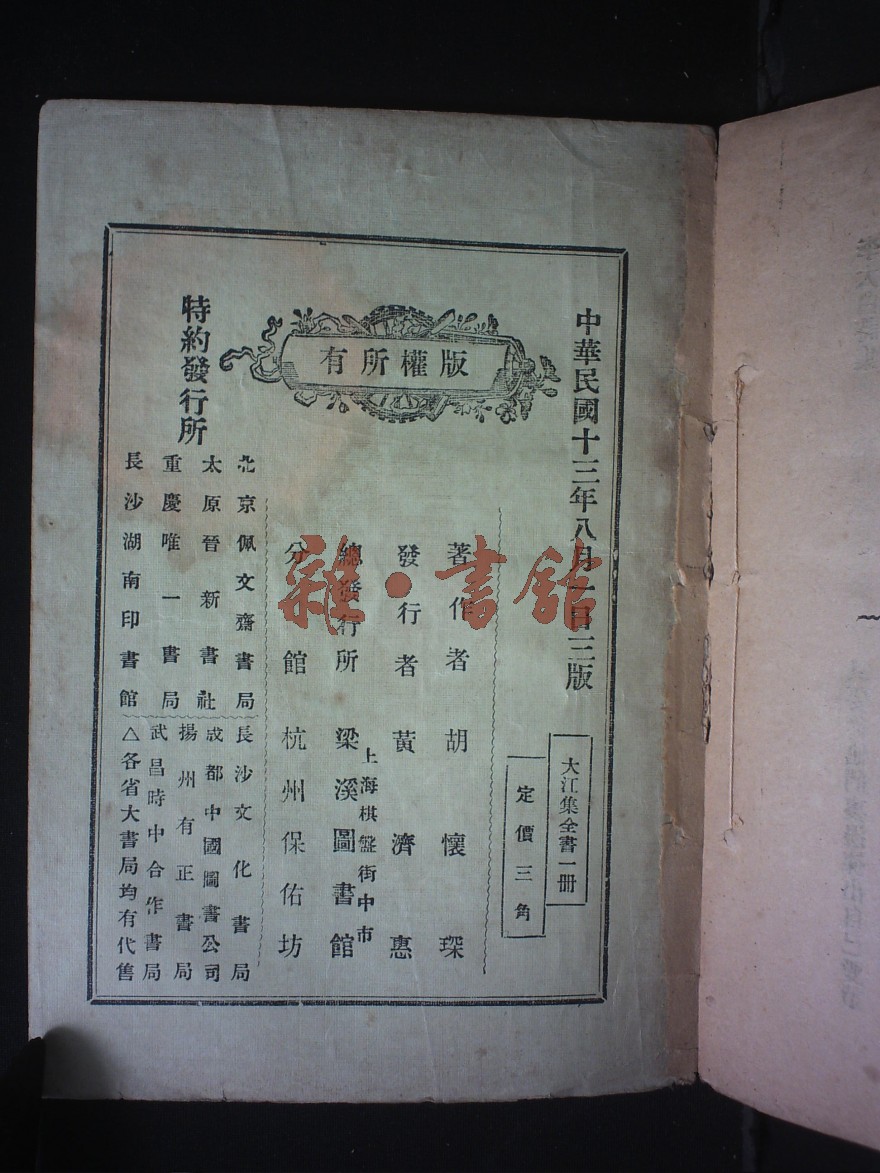 中華民國十三年八月一日三版
版權所有
大江集全書一冊
定價三角
著作者胡懷琛
發行者黃濟惠
上海棋盤街中市
總發行所梁溪圖書館
分館杭州保佑坊
特約發行所
北京佩文齋書局
長沙文化書局
太原晉新書社
成都中國圖書公司
重慶唯一書局
揚州有正書局
長沙湖南印書館
武昌時中合作書局
△各省大書局均有代售
雜·書館